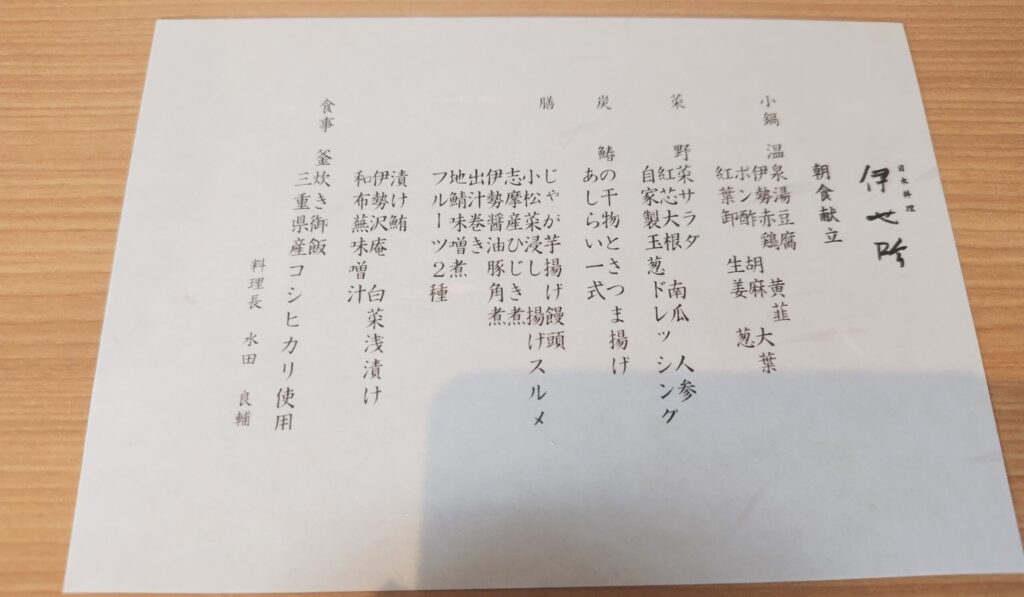 日本料理
伊せ吟
朝食献立
小鍋 温泉湯豆腐
伊勢赤鶏 黄韮 大葉
ポン酢 胡麻 葱
紅葉卸 生姜
菜 野菜サラダ
紅芯大根 南瓜 人参
自家製玉葱ドレッシング
炭 鰆の干物とさつま揚げ
あしらい一式
膳 じゃが芋揚げ饅頭
小松菜浸し 揚げスルメ
志摩産ひじき煮
伊勢醤油豚角煮
出汁巻き
地鯖味噌煮
フルーツ2種
漬け鮪
伊勢沢庵 白菜浅漬け
和布蕪味噌汁
食事 釜炊き御飯
三重県産コシヒカリ使用
料理長 水田 良輔